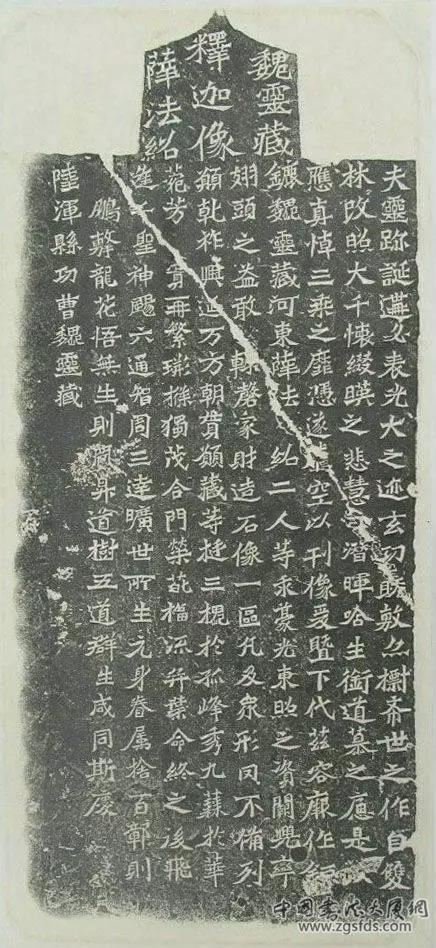 魏靈藏
釋迦像
薛法紹
夫靈跡誕遘必表光大之迹玄功既敷亦標希世之作自雙
林改照大千懷綴暎之悲慧潛暉哈生銜道慕之是
應真悼三乘之靡憑遂空以刊像爰暨下代茲容厥作鉅
鑣魏靈藏河東薛法紹二人等求豪光東照之資闕兜率
翅頭之益敢輒磬家財造石像一區凡及衆形罔不備列
願乾祚興延万方朝貫願藏等挺三槐於孤峰秀九蕀於華
菀芳實再繁荊條獨茂合門榮葩福流弈葉命終之後飛
逢千聖神颺六通智周三達曠世所生元身眷屬捨百鄣則
鵬擊龍花悟無生則鳳昇道樹五道群生咸同斯慶
陸渾縣功曹魏靈藏
中国书法大展网
www.zgsfds.com